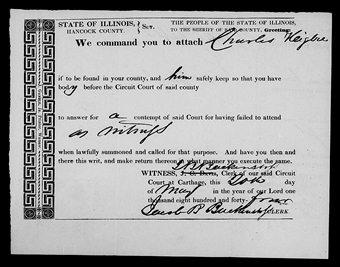 STATE OF ILLINOIS,
HANCOCK COUNTY.
} Sct.
THE PEOPLE OF THE STATE OF ILLINOIS,
TO THE SHERIFF OF COUNTY, Greeting:
We command you to attach Charles
if to be found in your county, and him safely keep so that you have
body before the Circuit Court of said county
to answer for a contempt of said Court for having failed to attend
as witness
when lawfully summoned and called for that purpose. And have you then and
there this writ, and make return thereon in what manner you execute the same.
WITNESS, J. C. Davis, Clerk of our said Circuit
Court at Carthage, this 20th day
of May in the year of our Lord one
thousand eight hundred and forty-
Jacob B Backenstos CLERK